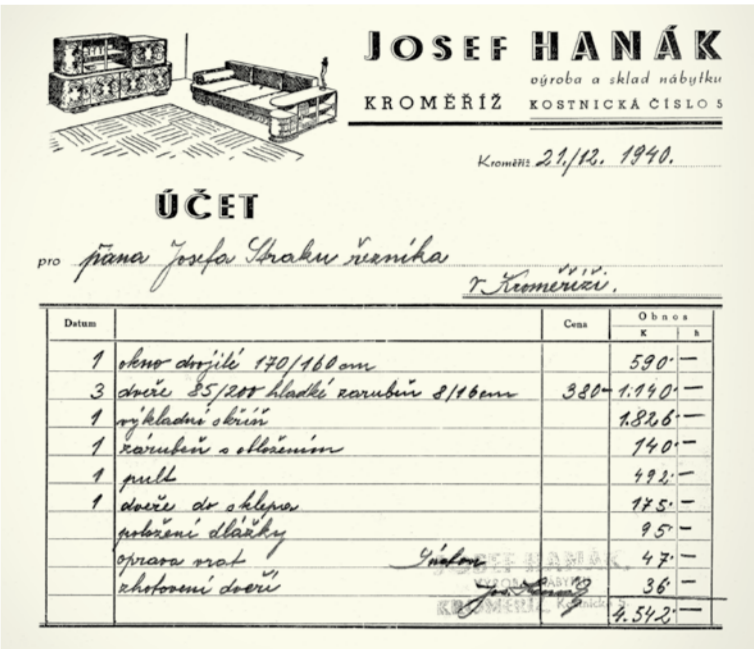 JOSEF HANÁK
výroba a sklad nábytku
KROMĚŘÍŽ KOSTNICKÁ ČÍSLO 5
Kroměříž 21./12. 1940.
ÚČET
pro pána Josefa Straku řezníka
v Kroměříži.
Datum Cena Obnos
K h
1 okno dvojité 170/160 cm 590·—
3 dveře 85/200 hladké zarubeň 8/16 cm 380- 1.140·—
1 výkladní skříň 1.826·—
1 zárubeň s obložením 140·—
1 pult 492·—
1 dveře do sklepa 175·—
položení dlážky 95·—
oprava vrat 47·—
zhotovení dveří 36·—
4.542·—
JOSEF HANÁK,
VÝROBA NÁBYTKU
KROMĚŘÍŽ, Kostnická 5.
Jos. Hanák